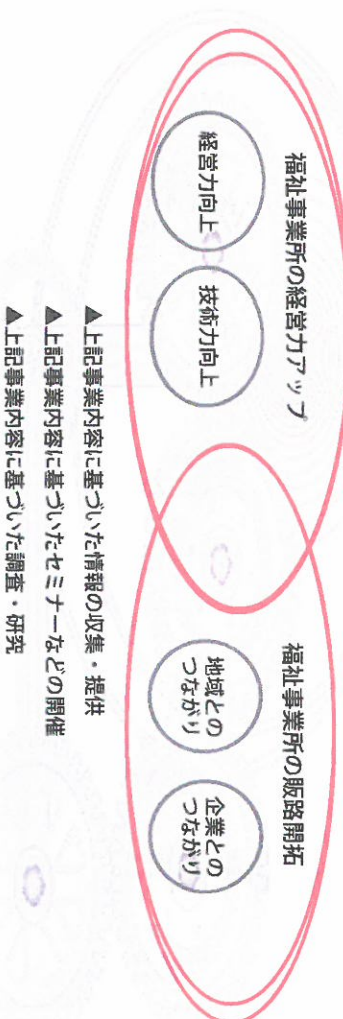 福祉事業所の経営力アップ
経営力向上
技術力向上
福祉事業所の販路開拓
地域との
つながり
企業との
つながり
▲上記事業内容に基づいた情報の収集・提供
▲上記事業内容に基づいたセミナーなどの開催
▲上記事業内容に基づいた調査・研究